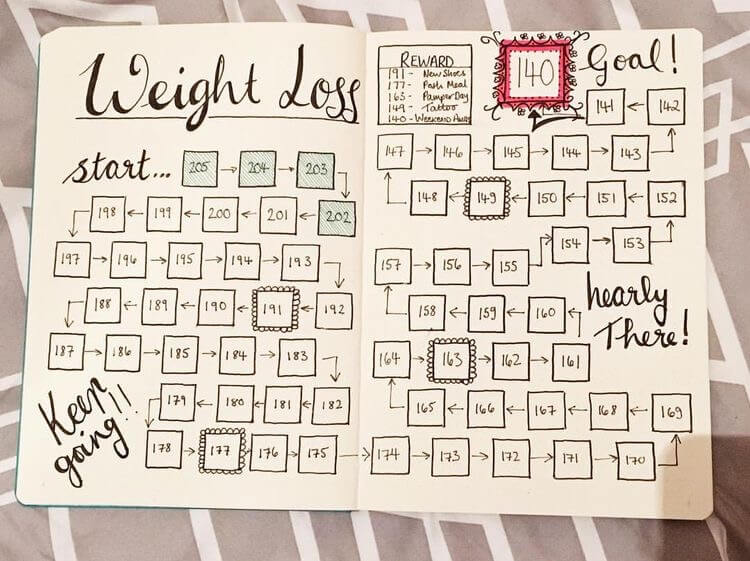 Weight Loss
start... 205 204 203
198 199 200 201 202
197 196 195 194 193
188 189 190 191 192
187 186 185 184 183
179 180 181 182
Keep
going!!
178 177 176 175
REWARD
191 - New Shoes
177 - Posh Meal
163 - Pamper Day
149 - Tattoo
140 - Weekend Away
140 Goal!
141 142
147 146 145 144 143
148 149 150 151 152
154 153
157 156 155
158 159 160
nearly
There!
164 163 162 161
165 166 167 168 169
174 173 172 171 170